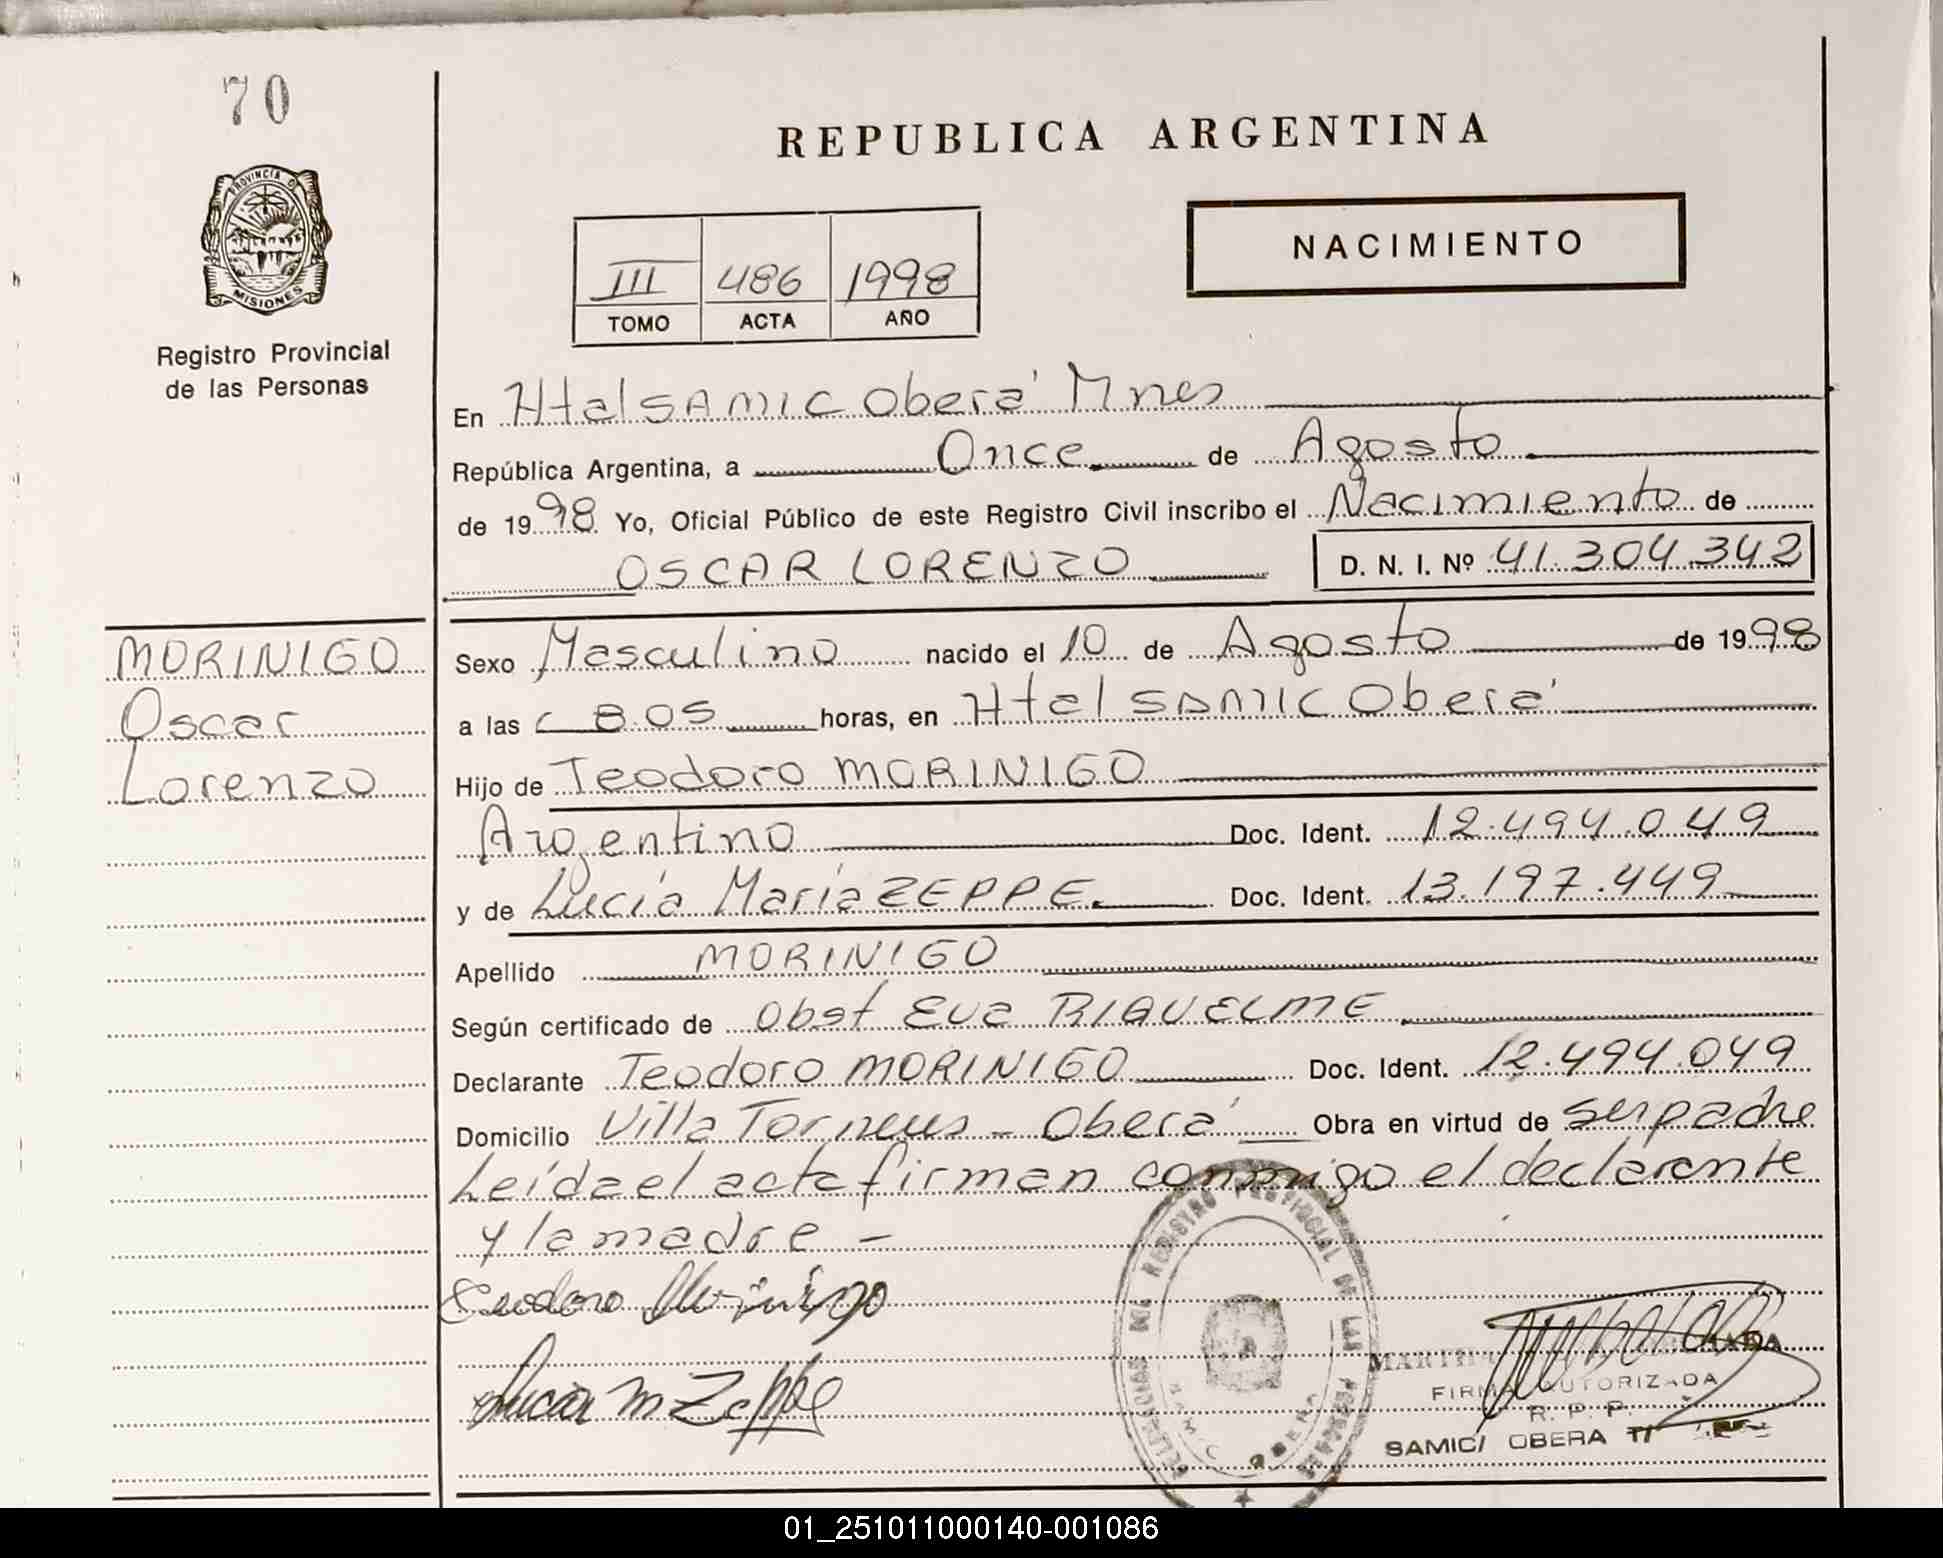 70
REPUBLICA ARGENTINA
PROVINCIA D
MISIONES
NACIMIENTO
III 486 1998
TOMO ACTA AÑO
Registro Provincial
de las Personas
En Htal SAMIC Oberá Mnes
República Argentina, a Once de Agosto
de 1998 Yo, Oficial Público de este Registro Civil inscribo el Nacimiento de
OSCAR LORENZO D. N. I. Nº 41.304.342
MORINIGO
Oscar
Lorenzo
Sexo Masculino nacido el 10 de Agosto de 1998
a las 8.05 horas, en Htal SAMIC Oberá
Hijo de Teodoro MORINIGO
Argentino Doc. Ident. 12.494.049
y de Lucía María ZEPPE Doc. Ident. 13.197.449
Apellido MORINIGO
Según certificado de Obst Eva RIQUELME
Declarante Teodoro MORINIGO Doc. Ident. 12.494.049
Domicilio Villa Torneus - Oberá Obra en virtud de ser padre
Leída el acta firman conmigo el declarante
y la madre -
Teodoro Morinigo
Lucia M Zeppe
REGISTRO PROVINCIAL DE LAS
MARTHA
FIRMA AUTORIZADA
R. P. P.
SAMIC/ OBERA
01_251011000140-001086